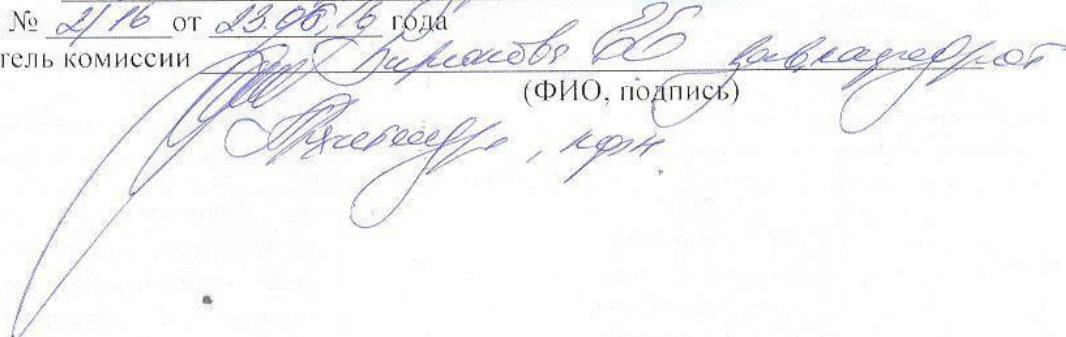 № 2/16 от 23.06.16 года
тель комиссии Бирюкова ЕЕ завкафедрой
(ФИО, подпись)
, кфн